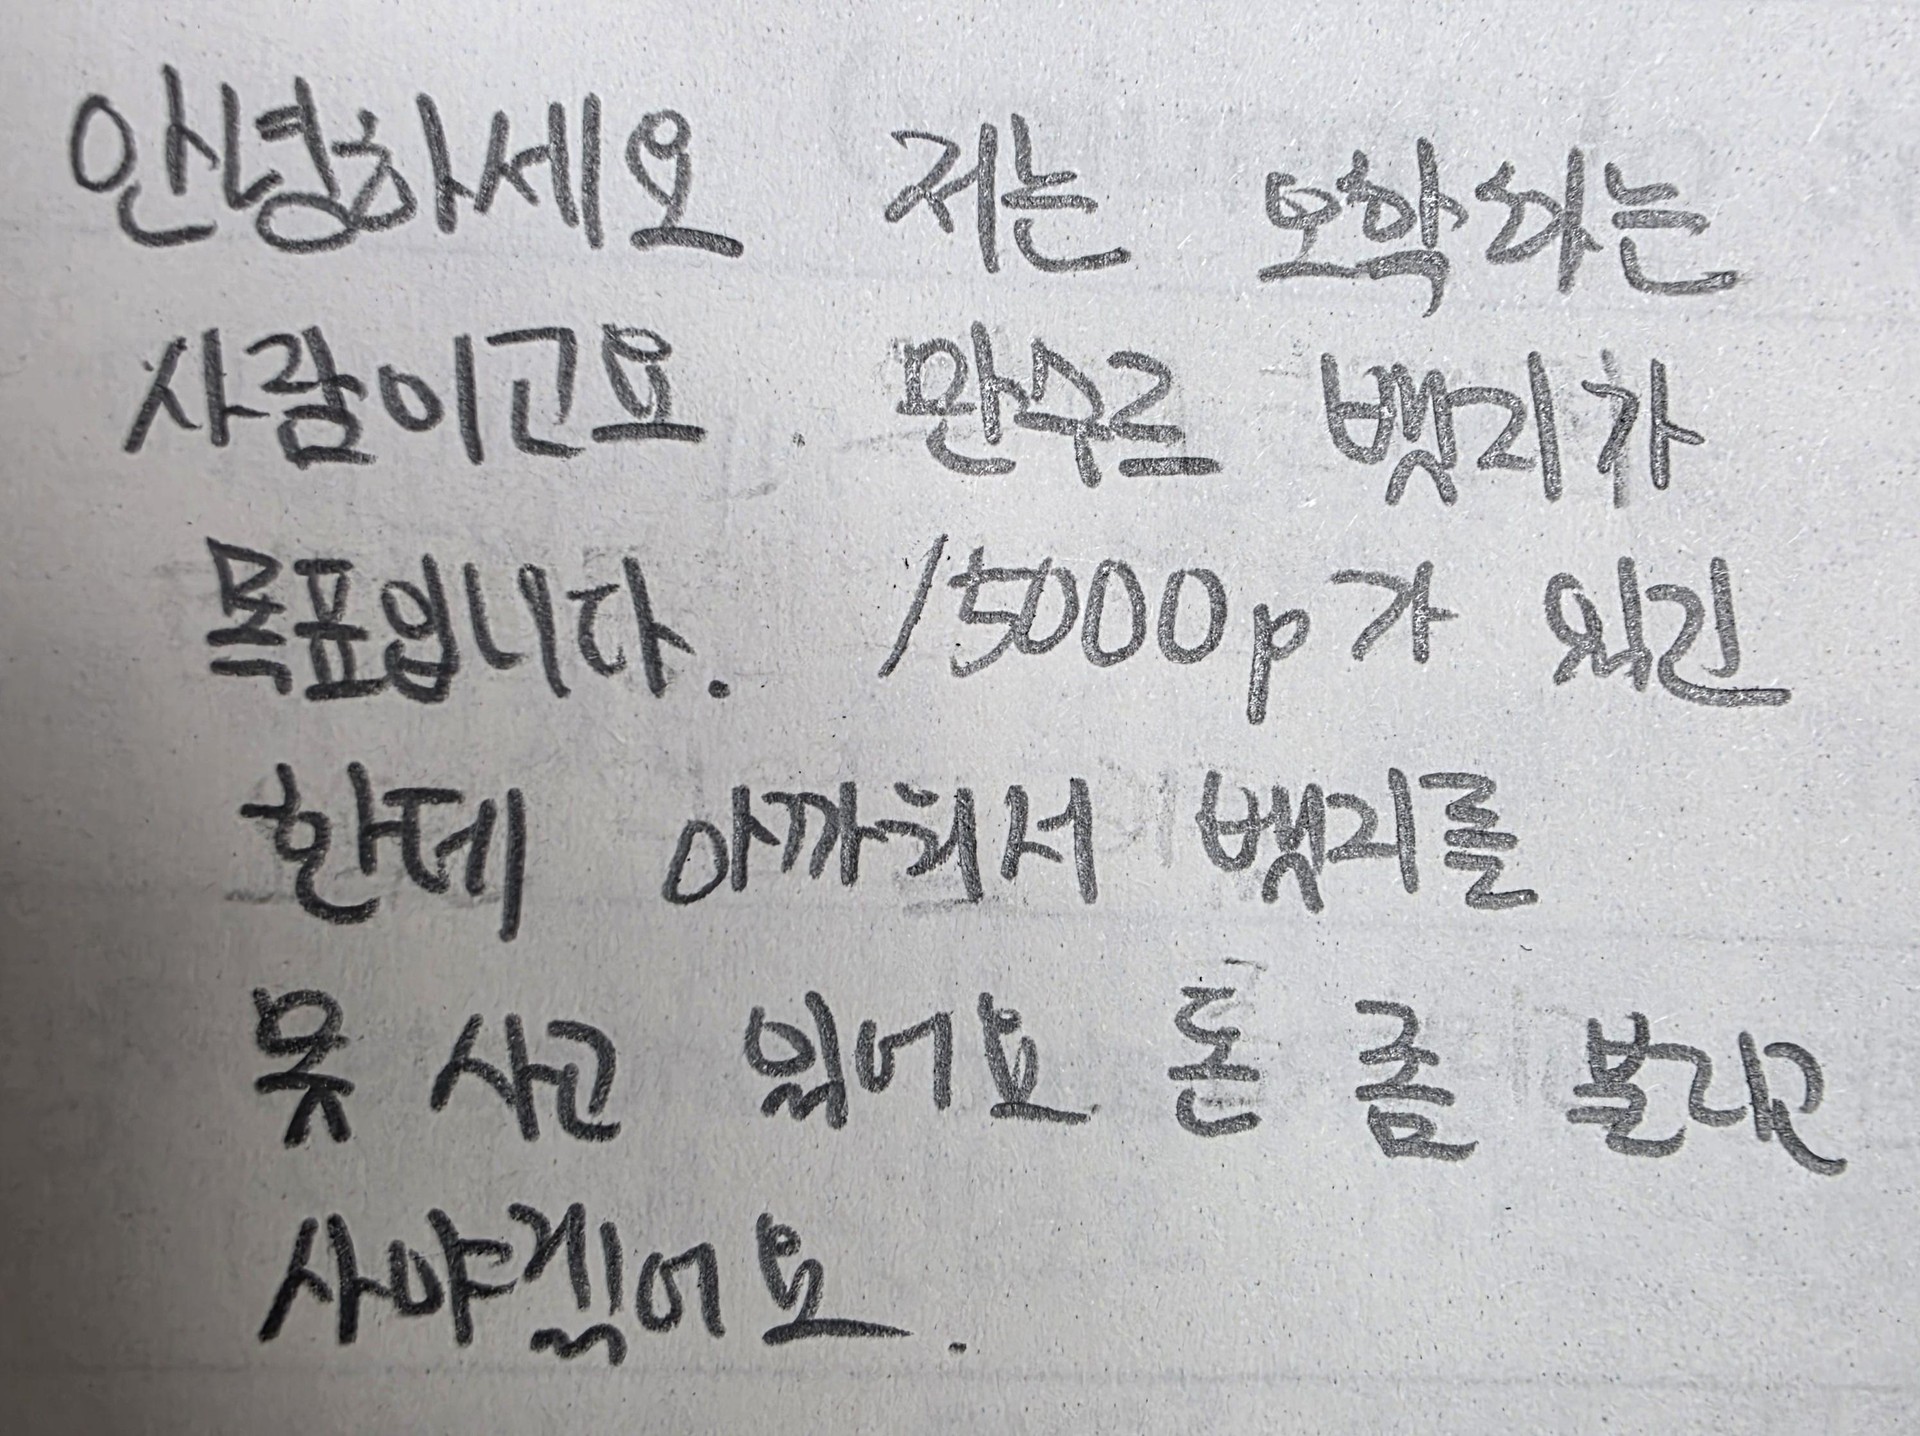 안녕하세요 저는 오학하는
사람이고요. 만수르 뱃지가
목표입니다. 15000p가 있긴
한데 아까워서 뱃지를
못 사고 있어요 돈 좀 불리고
사야겠어요.